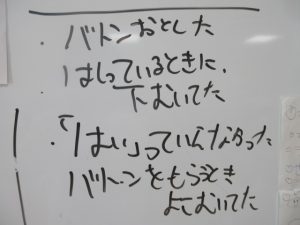 ・バトンおとした
はしっているときに、
下むいてた
・「はい」っていわなかった
バトンをもらうとき
よこむいてた